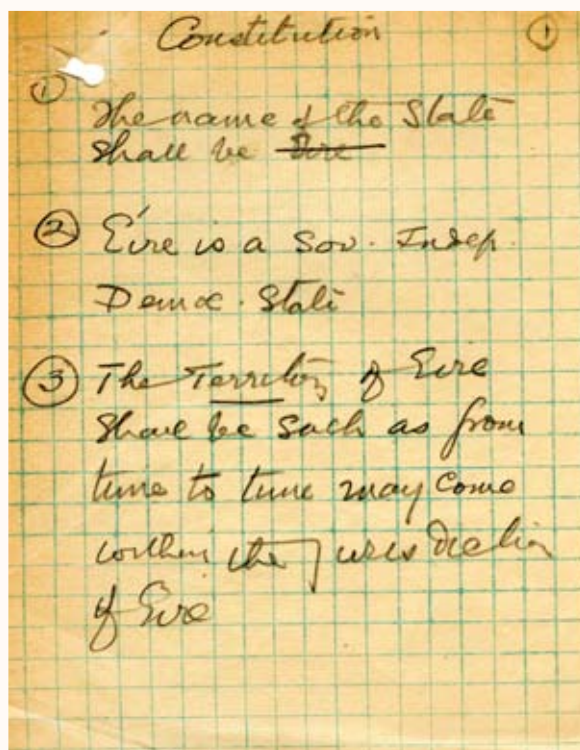 Constitution ①
① The name of the State
shall be Eire
② Éire is a Sov. Indep.
Democ. State
③ The Territory of Eire
Shall be such as from
time to time may come
within the jurisdiction
of Eire